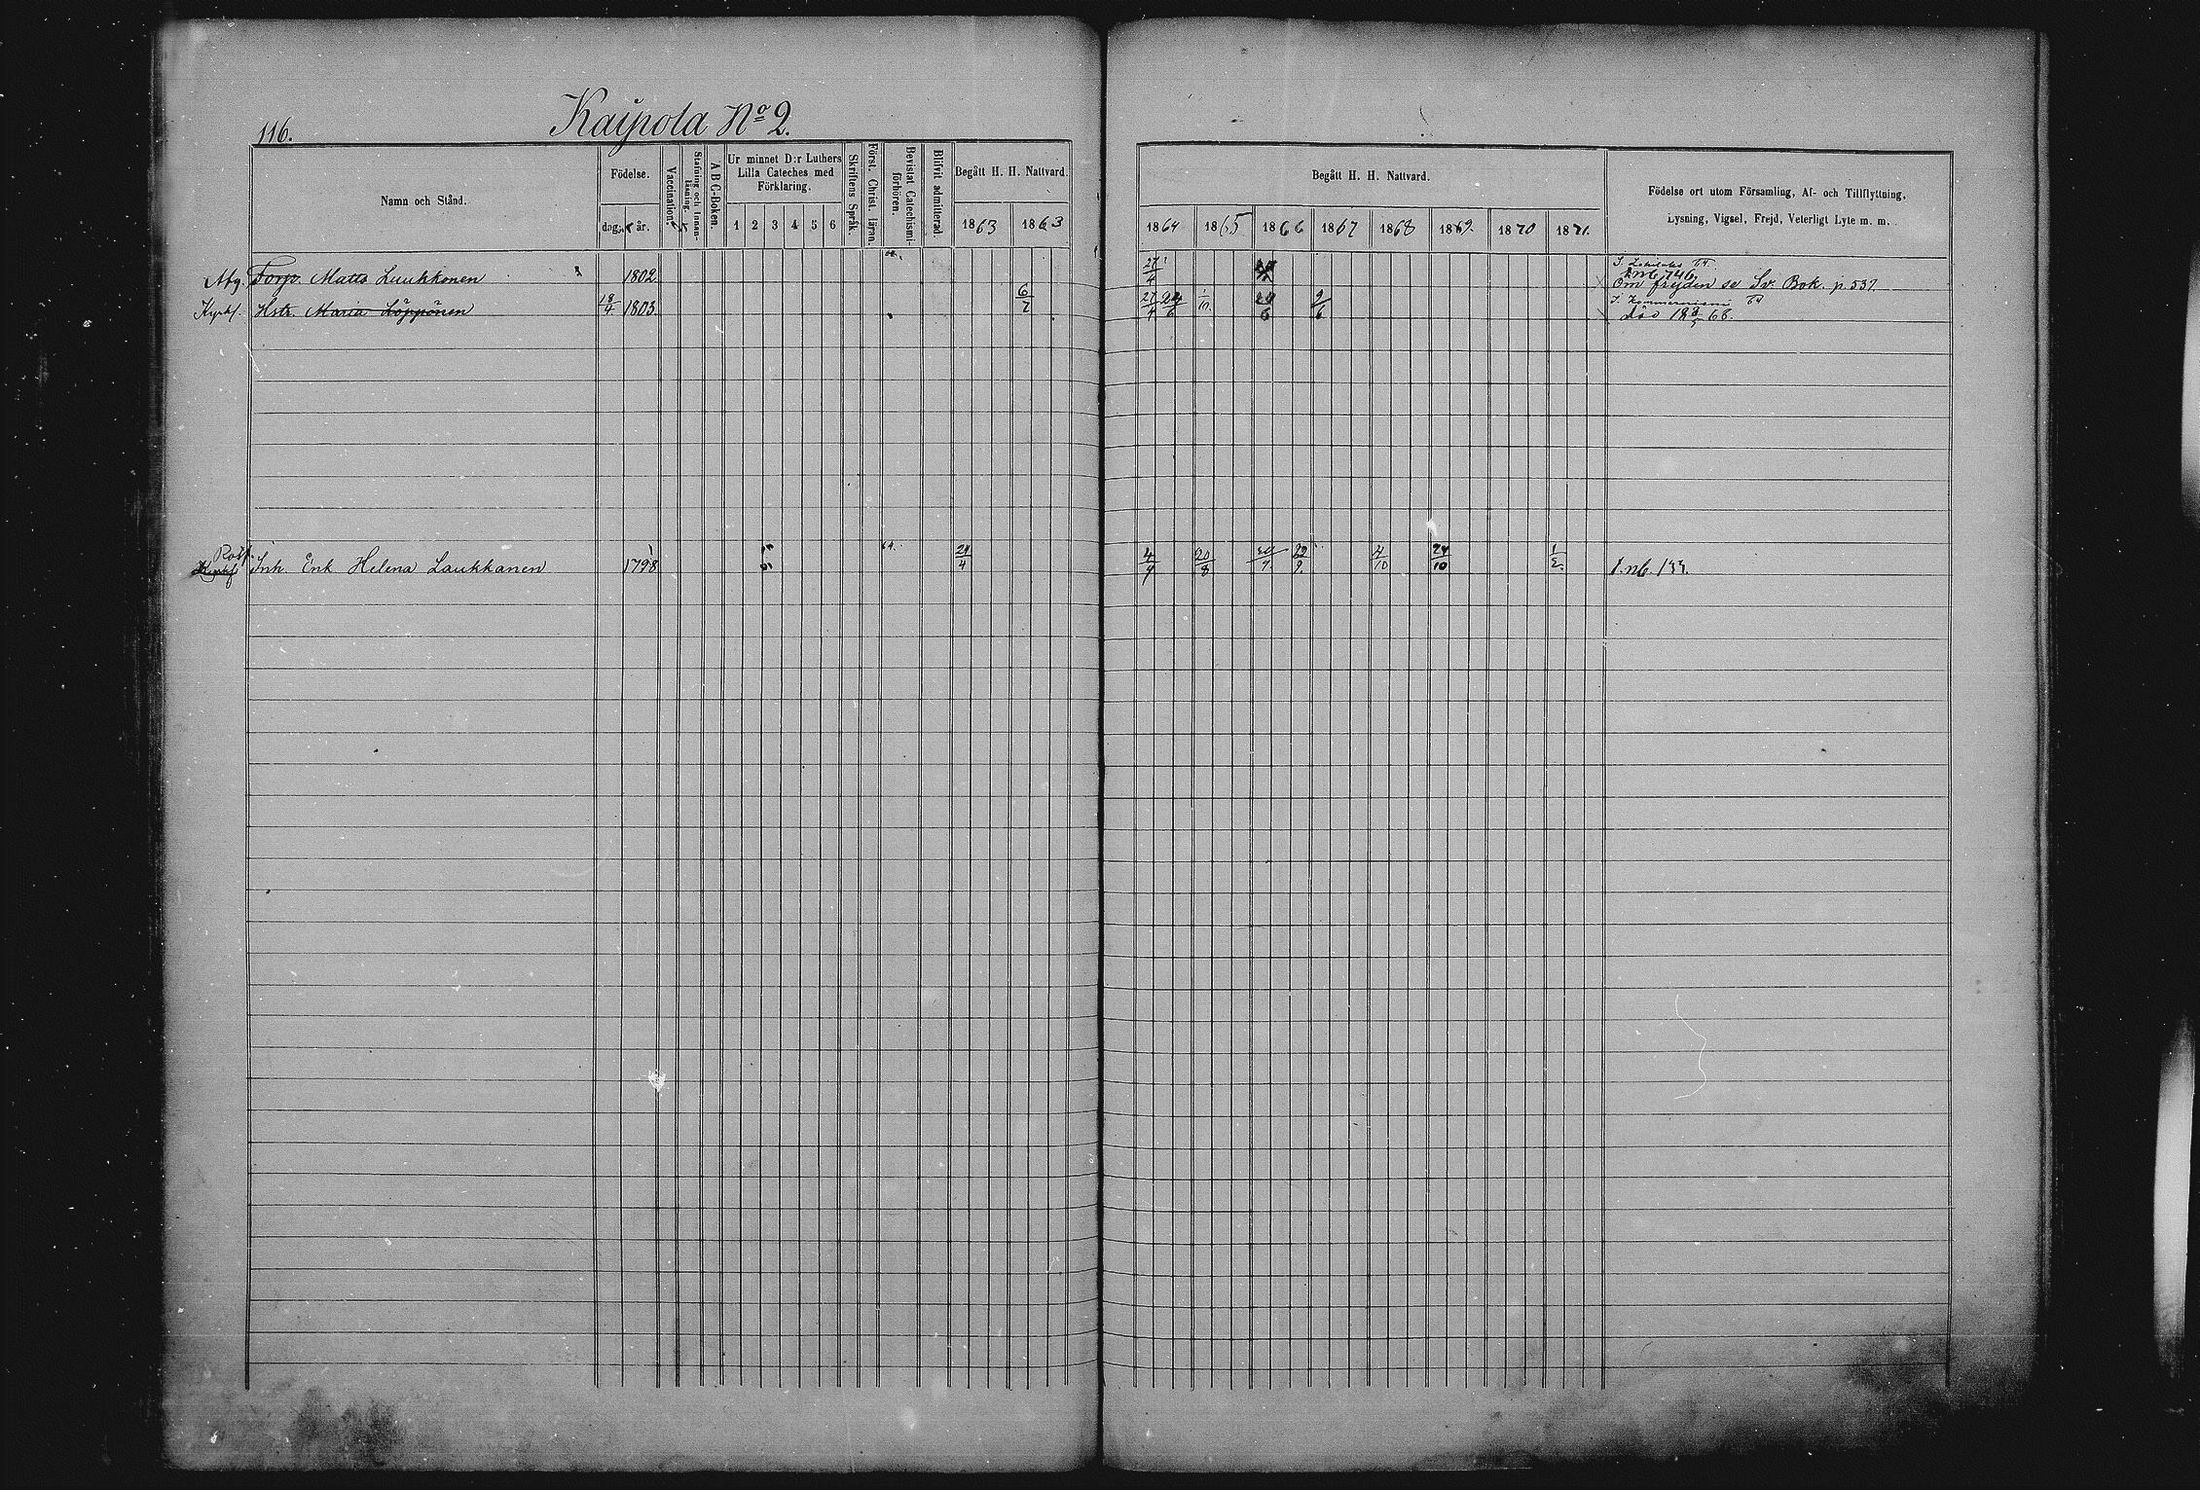 116.
Kaipola No 2.
Namn och Stånd.
Födelse.
dag. år.
Vaccination.
Stafning och Innan-läsning.
A B C-Boken.
Ur minnet D:r Luthers
Lilla Cateches med
Förklaring.
1 2 3 4 5 6
Skriftens Språk.
Först. Christ. läran.
Bevistat Catechismi-förhören.
Blifvit admitterad.
Begått H. H. Nattvard.
1863 1863
Begått H. H. Nattvard.
1864 1865 1866 1867 1868 1869 1870 1871.
Födelse ort utom Församling, Af- och Tillflyttning,
Lysning, Vigsel, Frejd, Veterligt Lyte m. m.
Torp. Matts Luukkonen 1802 27/4
I. nb. 746.
Om frejden se Sv. Bok. p. 537
Hstr. Maria Köppönen 18/4 1803 6/7 27/4 24/6 29/6 9/6
död 18 8/5 68.
Inh. Enk Helena Laukkanen 1798 64. 24/4 4/9 20/8 22/9. 4/10 24/10 1/2. I. nb. 133.